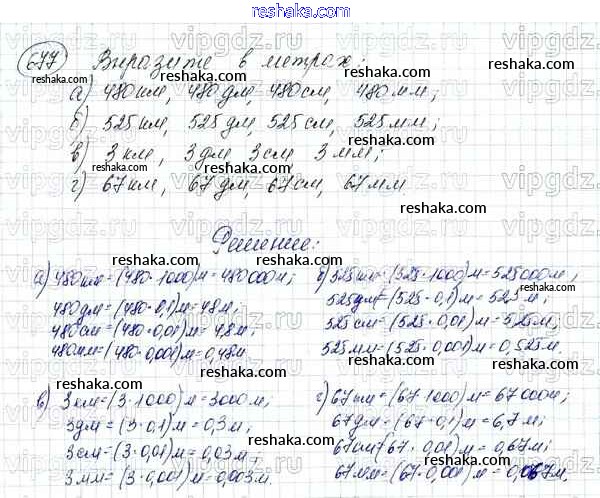 677 Выразите в метрах:
а) 480 км, 480 дм, 480 см, 480 мм;
б) 525 км, 525 дм, 525 см, 525 мм;
в) 3 км, 3 дм 3 см 3 мм;
г) 67 км, 67 дм, 67 см, 67 мм
Решение:
а) 480 км = (480·1000) м = 480000 м;
480 дм = (480·0,1) м = 48 м;
480 см = (480·0,01) м = 4,8 м;
480 мм = (480·0,001) м = 0,48 м.
б) 525 км = (525·1000) м = 525000 м;
525 дм = (525·0,1) м = 52,5 м;
525 см = (525·0,01) м = 5,25 м;
525 мм = (525·0,001) м = 0,525 м.
в) 3 км = (3·1000) м = 3000 м;
3 дм = (3·0,1) м = 0,3 м;
3 см = (3·0,01) м = 0,03 м;
3 мм = (3·0,001) м = 0,003 м.
г) 67 км = (67·1000) м = 67000 м;
67 дм = (67·0,1) м = 6,7 м;
67 см = (67·0,01) м = 0,67 м;
67 мм = (67·0,001) м = 0,067 м.
reshaka.com
vipgdz.com